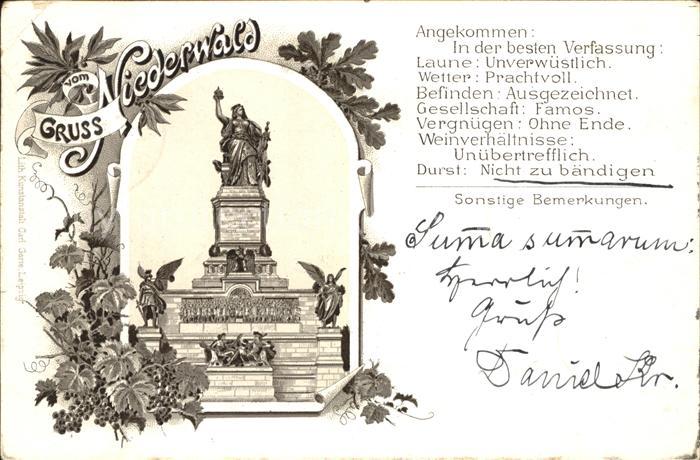 Gruss
vom
Niederwald
Angekommen:
In der besten Verfassung:
Laune: Unverwüstlich.
Wetter: Prachtvoll.
Befinden: Ausgezeichnet.
Gesellschaft: Famos.
Vergnügen: Ohne Ende.
Weinverhältnisse:
Unübertrefflich.
Durst: Nicht zu bändigen
Sonstige Bemerkungen.
Suma sumarum:
Herrlich!
Gruß
Daniel Kr.
Lith. Kunstanstalt Carl Garte, Leipzig